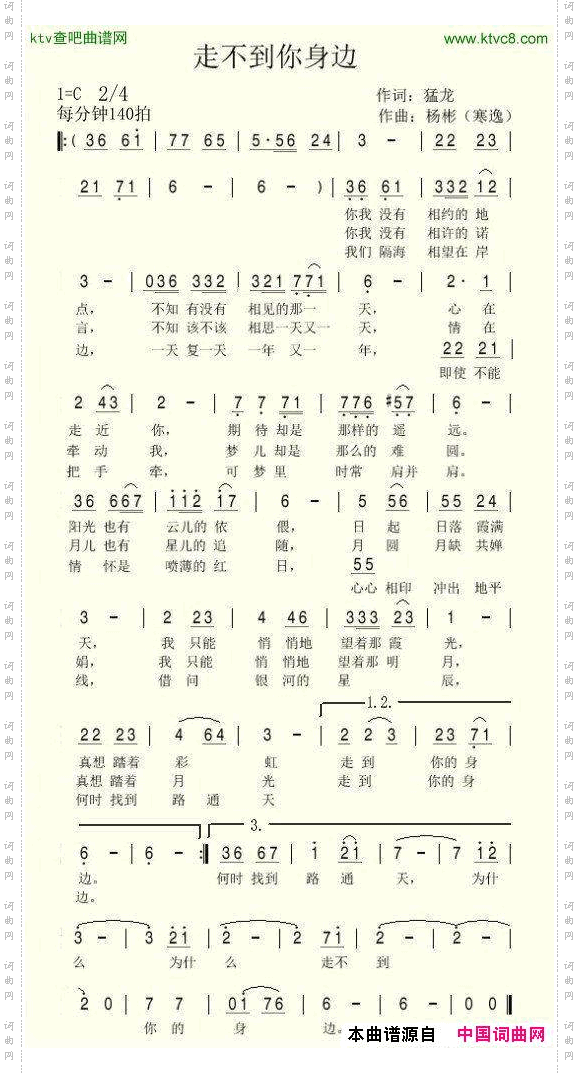 ktv查吧曲谱网 www.ktvc8.com
走不到你身边
1=C 2/4 作词：猛龙
每分钟140拍 作曲：杨彬（寒逸）
‖:( 36 61 | 77 65 | 5·56 24 | 3 - | 22 23 |
21 71 | 6 - | 6 - ) | 36 61 | 332 12 |
你我 没有 相约的 地
你我 没有 相许的 诺
我们 隔海 相望在 岸
3 - | 036 332 | 321 771 | 6 - | 2· 1 |
点， 不知 有没有 相见的那一 天， 心 在
言， 不知 该不该 相思一天又一 天， 情 在
边， 一天 复一天 一年 又一 年， 22 21 |
即使 不能
2 43 | 2 - | 7 7 71 | 776 #57 | 6 - |
走 近 你， 期 待 却是 那样的 遥 远。
牵 动 我， 梦 儿 却是 那么的 难 圆。
把 手 牵， 可 梦 里 时常 肩并 肩。
36 667 | 112 17 | 6 - | 5 56 | 55 24 |
阳光 也有 云儿的 依 偎， 日 起 日落 霞满
月儿 也有 星儿的 追 随， 月 圆 月缺 共婵
情 怀是 喷薄的 红 日， 55
心心 相印 冲出 地平
3 - | 2 23 | 4 46 | 333 23 | 1 - |
天， 我 只能 悄 悄地 望着那 霞 光，
娟， 我 只能 悄 悄地 望着那 明 月，
线， 借 问 银 河的 星 辰，
1.2.
22 23 | 4 64 | 3 - | 2 2 3 | 23 71 |
真想 踏着 彩 虹 走 到 你的 身
真想 踏着 月 光 走 到 你的 身
何时 找到 路 通 天
3.
6 - | 6 - :‖ 36 67 | 1 21 | 7 - | 7 12 |
边。 何时 找到 路 通 天， 为什
边。
3 - | 3 21 | 2 - | 2 71 | 2 - | 2 - |
么 为什 么 走不 到
2 0 | 7 7 | 01 76 | 6 - | 6 - ‖
你 的 身 边。
本曲谱源自 中国词曲网